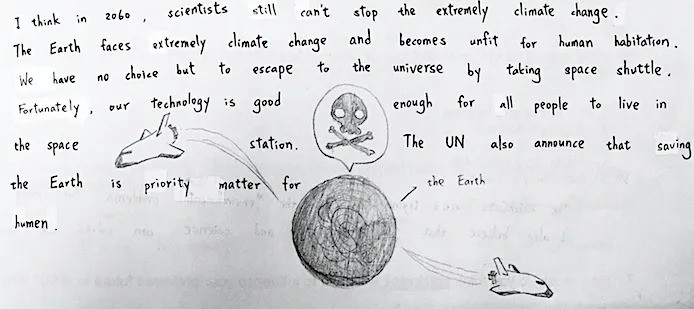 I think in 2060, scientists still can't stop the extremely climate change.
The Earth faces extremely climate change and becomes unfit for human habitation.
We have no choice but to escape to the universe by taking space shuttle.
Fortunately, our technology is good enough for all people to live in
the space station. The UN also announce that saving
the Earth is priority matter for the Earth
humen.